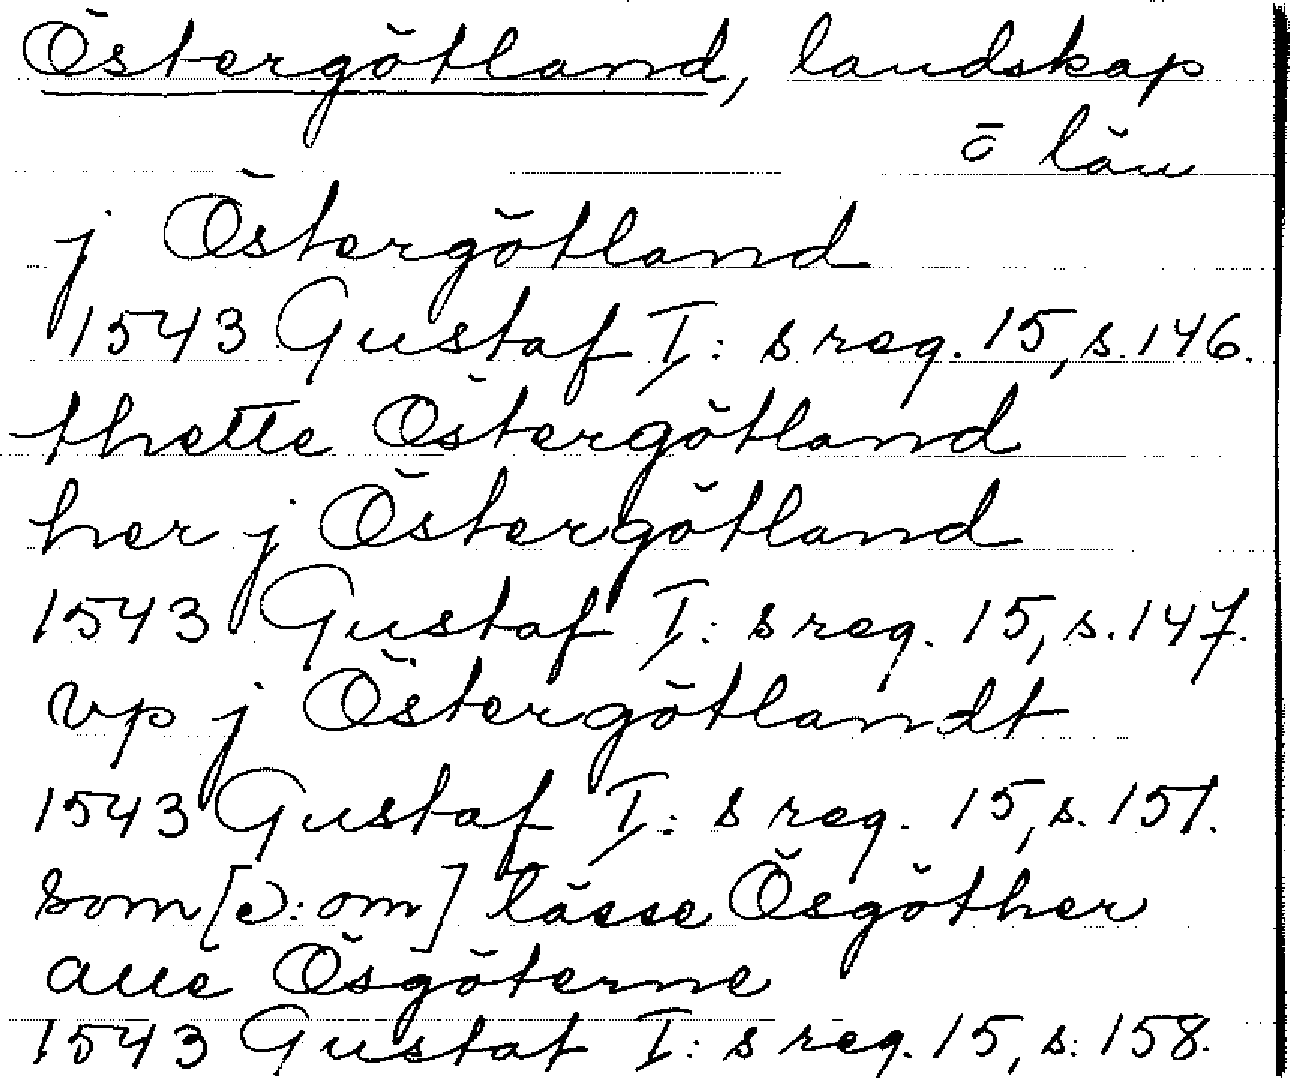 Östergötland, landskap
ō län
j Östergötland
1543 Gustaf I:s reg. 15, s. 146.
thette Östergötland
her j Östergötland
1543 Gustaf I:s reg. 15, s. 147.
vp j Östergötlandt
1543 Gustaf I:s reg. 15, s. 151.
som [ɔ: om] tässe Ösgöther
aue Ösgöterne
1543 Gustaf I:s reg. 15, s. 158.